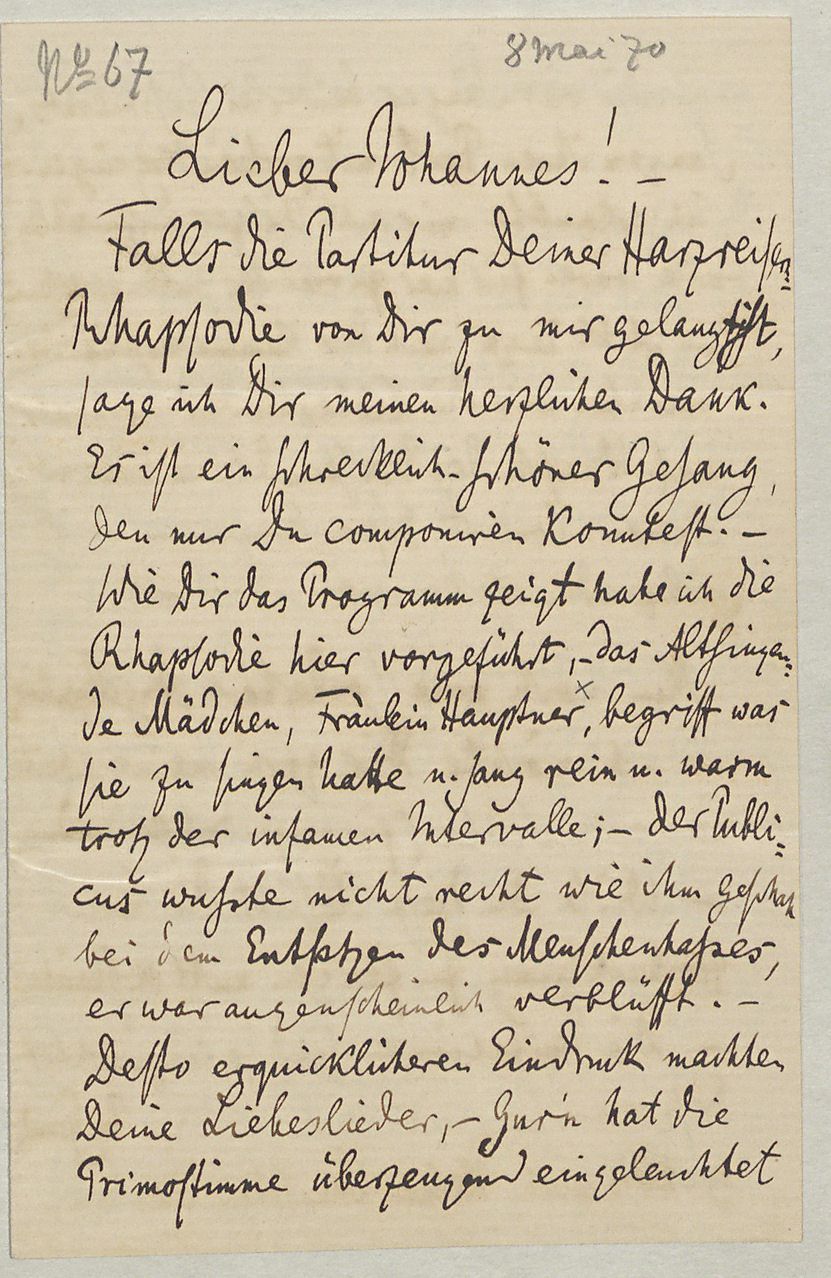 No 67
8 Mai 70
Lieber Johannes! –
Falls die Partitur Deiner Harzreisen=
Rhapsodie von Dir zu mir gelangt ist,
sage ich Dir meinen herzlichen Dank.
Es ist ein schrecklich-schöner Gesang,
den nur Du componiren konntest. –
Wie Dir das Programm zeigt habe ich die
Rhapsodie hier vorgeführt, – das Altsingen=
de Mädchen, Fräulein Hauptner ×, begriff was
sie zu singen hatte u. sang rein u. warm
trotz der infamen Intervalle; – der Publi=
cus wusste nicht recht wie ihm geschah
bei dem Entsetzen des Menschenhasses,
er war augenscheinlich verblüfft. –
Desto erquicklicheren Eindruck machten
Deine Liebeslieder, – Gur'n hat die
Primostimme überzeugend eingeleuchtet